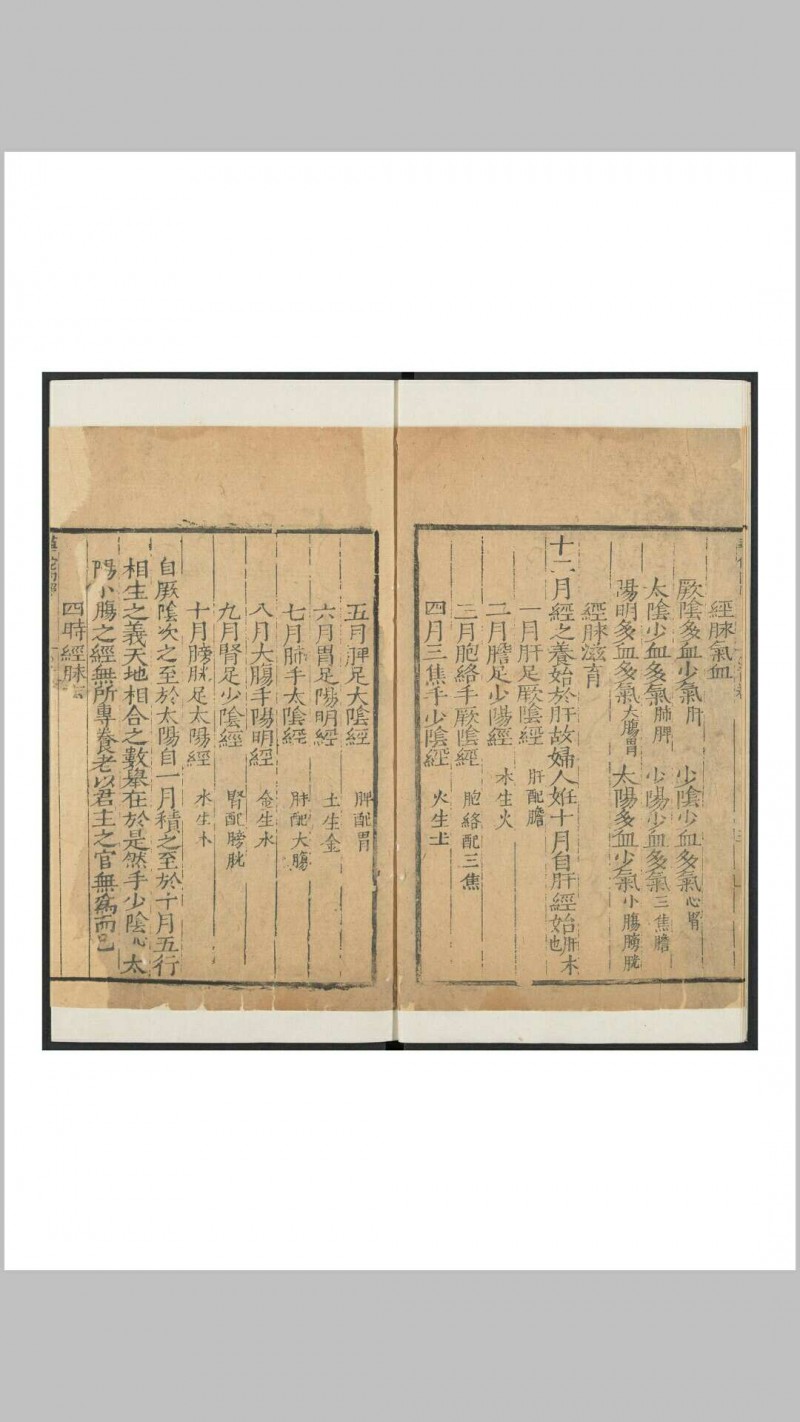 經脉氣血
厥陰多血少氣肝 少陰少血多氣心腎
太陰少血多氣肺脾 少陽少血多氣三焦膽
陽明多血多氣大腸胃 太陽多血少氣小腸膀胱
經脉滋育
十二月經之養始於肝故婦人姙十月自肝經始肝木也
一月肝足厥陰經 肝配膽
二月膽足少陽經 木生火
三月胞絡手厥陰經 胞絡配三焦
四月三焦手少陰經 火生土
五月脾足大陰經 脾配胃
六月胃足陽明經 土生金
七月肺手太陰經 肺配大腸
八月大腸手陽明經 金生水
九月腎足少陰經 腎配膀胱
十月膀胱足太陽經 水生木
自厥陰次之至於太陽自一月積之至於十月五行
相生之義天地相合之數舉在於是然手少陰心太
陽小腸之經無所專養者以君主之官無爲而已
四時經脉